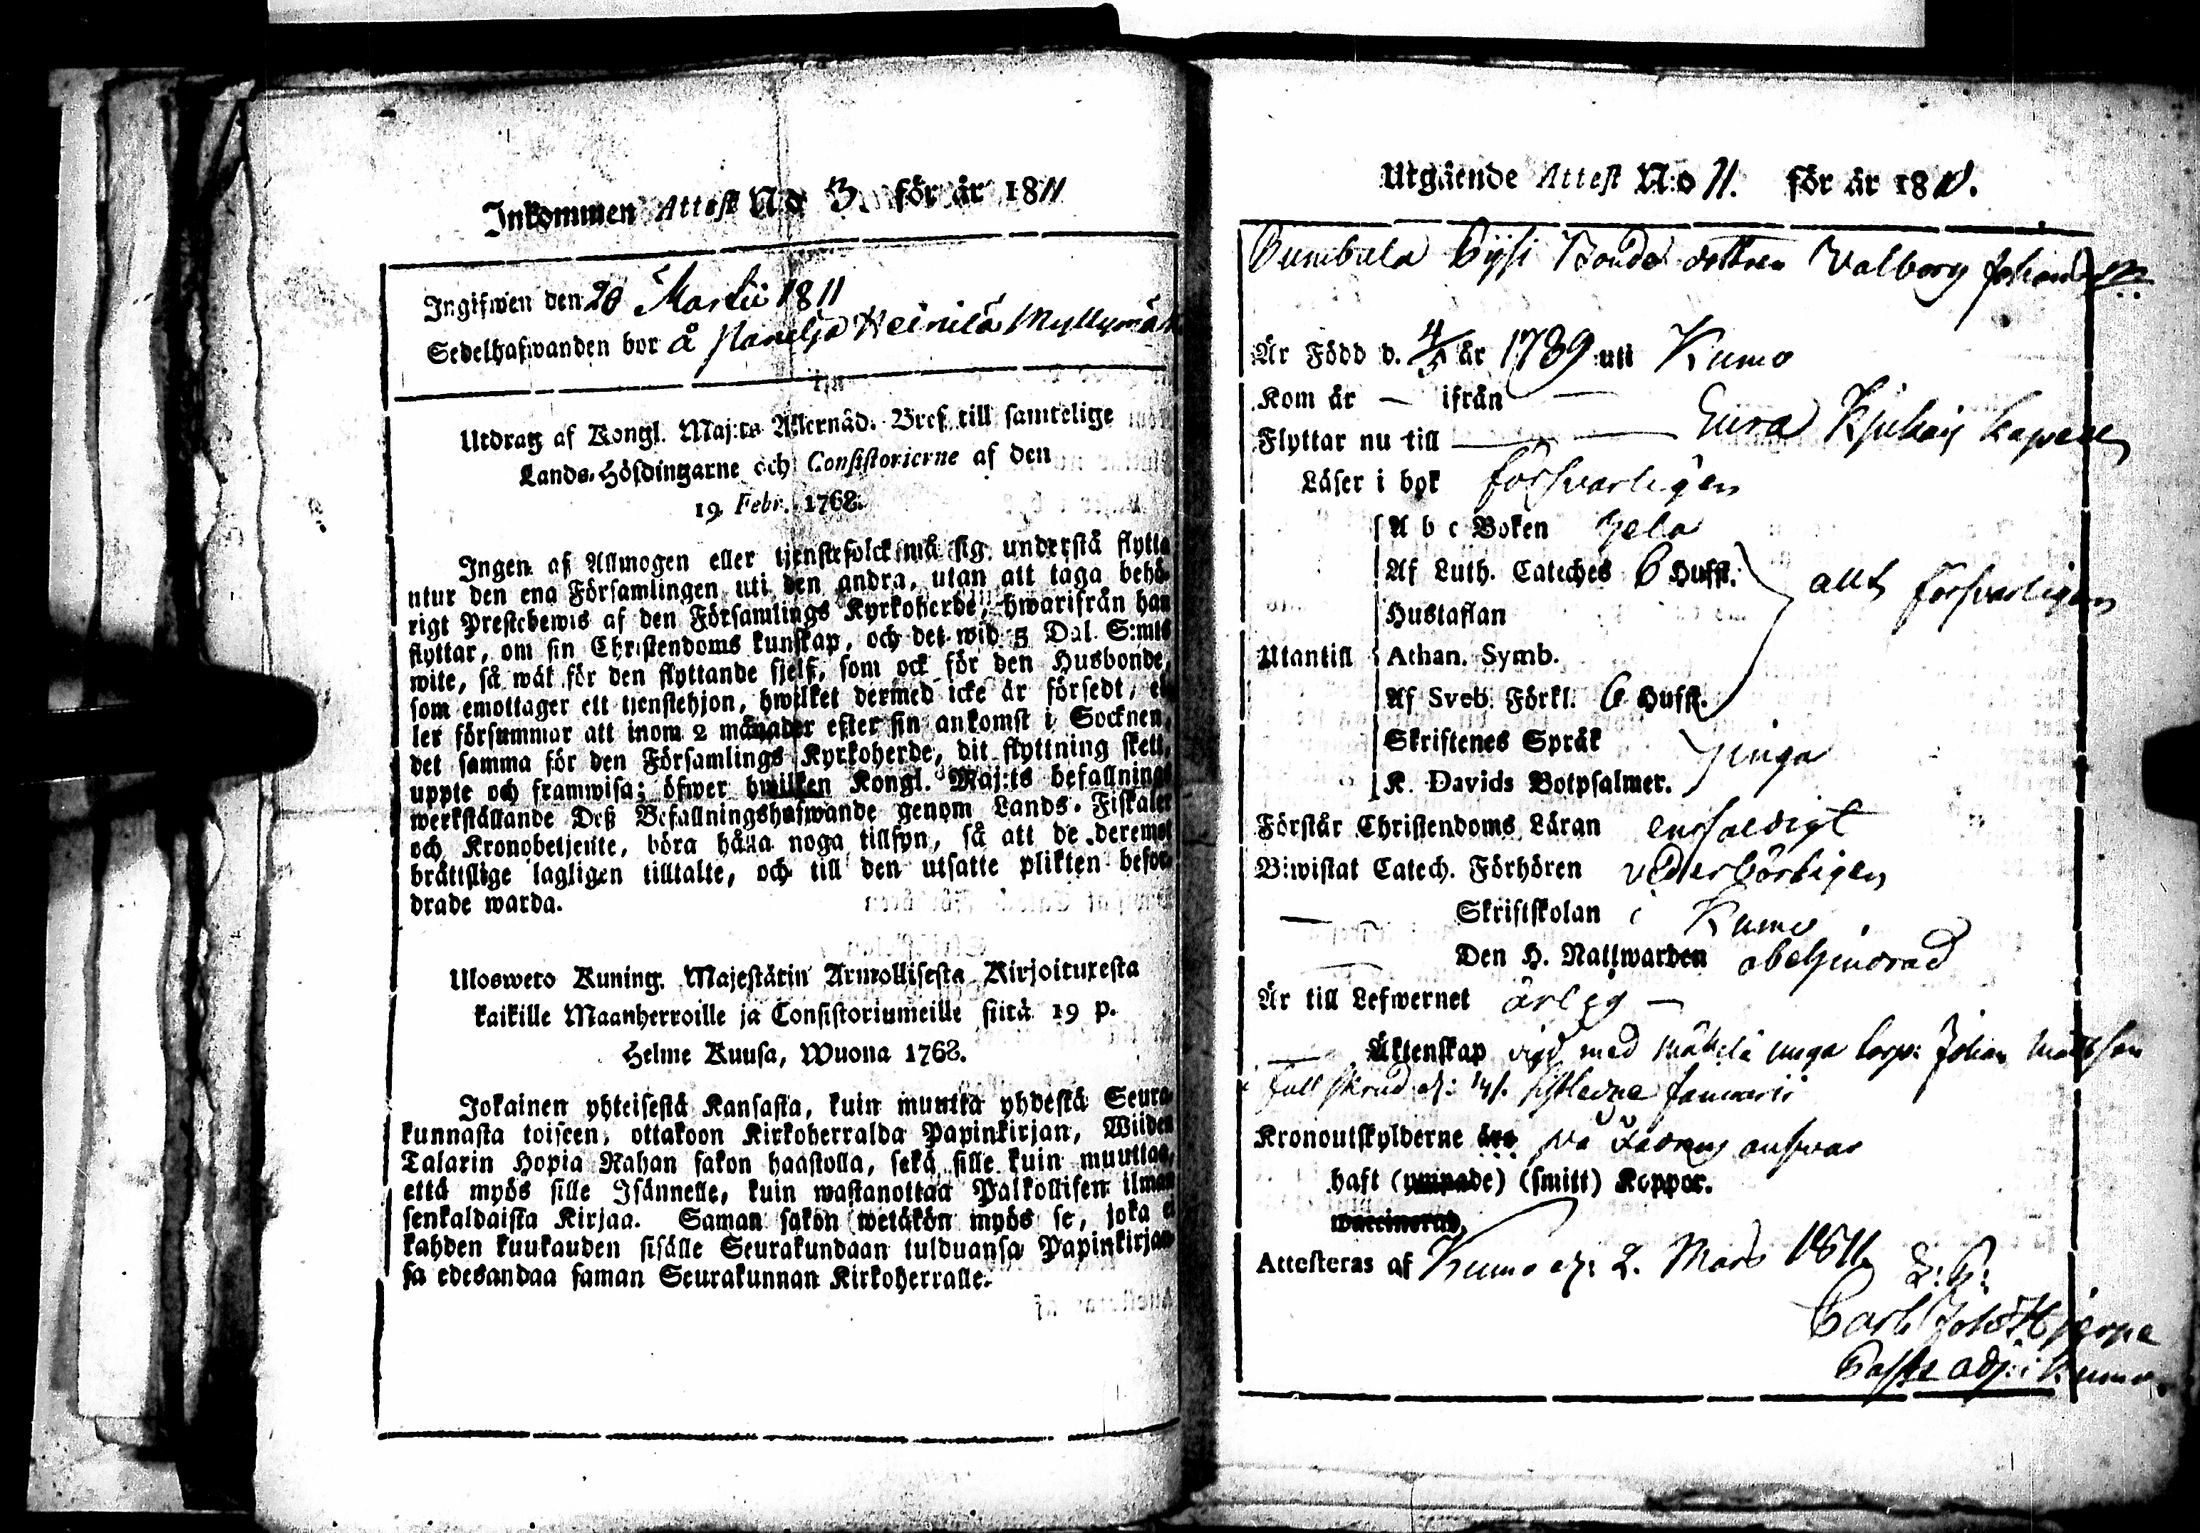 Inkommen Attest N:o 3. för år 1811
Ingifwen den 20 Martii 1811
Sedelhafwanden bor å Panelja Heinilä Myllymäki
Utdrag af Kongl. Maj:ts Allernåd. Bref till samtelige
Lands-Höfdingarne och Consistorierne af den
19 Febr. 1768.
Ingen af Allmogen eller tjenstefolck må sig understå flytta
utur den ena Församlingen uti den andra, utan att taga behö-
rigt Prestebewis af den Församlings Kyrkoherde, hwarifrån han
flyttar, om sin Christendoms kunskap, och det wid 5 Dal. S:mts
wite, så wäl för den flyttande sjelf, som ock för den Husbonde,
som emottager ett tjenstehjon, hwilket dermed icke är försedt, el-
ler försummar att inom 2 månader efter sin ankomst i Socknen,
det samma för den Församlings Kyrkoherde, dit flyttning skett,
uppte och framwisa; öfwer hwilken Kongl. Maj:ts befallnings
werkställande Deß Befallningshafwande genom Lands-Fiskaler
och Kronobetjente, böra hålla noga tillsyn, så att de deremot
bråttslige lagligen tilltalte, och till den utsatte plikten befor-
drade warda.
Uloswero Kuning. Majestätin Armollisesta Kirjoituxesta
kaikille Maanherroille ja Consistoriumeille siitä 19 p.
Helme Kuusa, Wuona 1768.
Jokainen yhteisestä Kansasta, kuin muutta yhdestä Seura-
kunnasta toiseen, ottakoon Kirkoherralda Papinkirjan, Wiiden
Talarin Hopia Rahan sakon haastolla, sekä sille kuin muuttaa,
että myös sille Isännelle, kuin wastanottaa Palkollisen ilman
senkaldaista Kirjaa. Saman sakon wetäkön myös se, joka ei
kahden kuukauden sisälle Seurakundaan tulduansa Papinkirjaan-
sa edesandaa saman Seurakunnan Kirkoherralle.
Utgående Attest N:o 11. för år 1811.
Cumbula Cysi Bonde dottren Valborg Johansdr
Är Född d. 4/5 år 1789 uti Kumo
Kom år — ifrån —
Flyttar nu till — Eura Kjukais Capell
Läser i bok försvarligen
A b c Boken hela
Af Luth. Cateches 6 Hufst. allt försvarligen
Hustaflan
Utantill Athan. Symb.
Af Sveb. Förkl. 6 Hufst.
Skriftenes Språk
K. Davids Botpsalmer. inga
Förstår Christendoms Läran enfaldigt
Biwistat Catech. Förhören vederbörligen
— Skriftskolan i Kumo
— Den H. Nattwarden obehindrad
Är till Lefwernet ärlig —
— Äktenskap vigd med Mäkelä unga torp: Johan Mattsson
i full skrud d: 14. sistledne Januarii
Kronoutskylderne äro på Fadrens ansvar
haft (ympade) (smitt) Koppor.
waccinerad.
Attesteras af Kumo d: 2. Mars 1811.
L:S:
Carl Joh: Hjerpe
Past: adj: i Kumo.